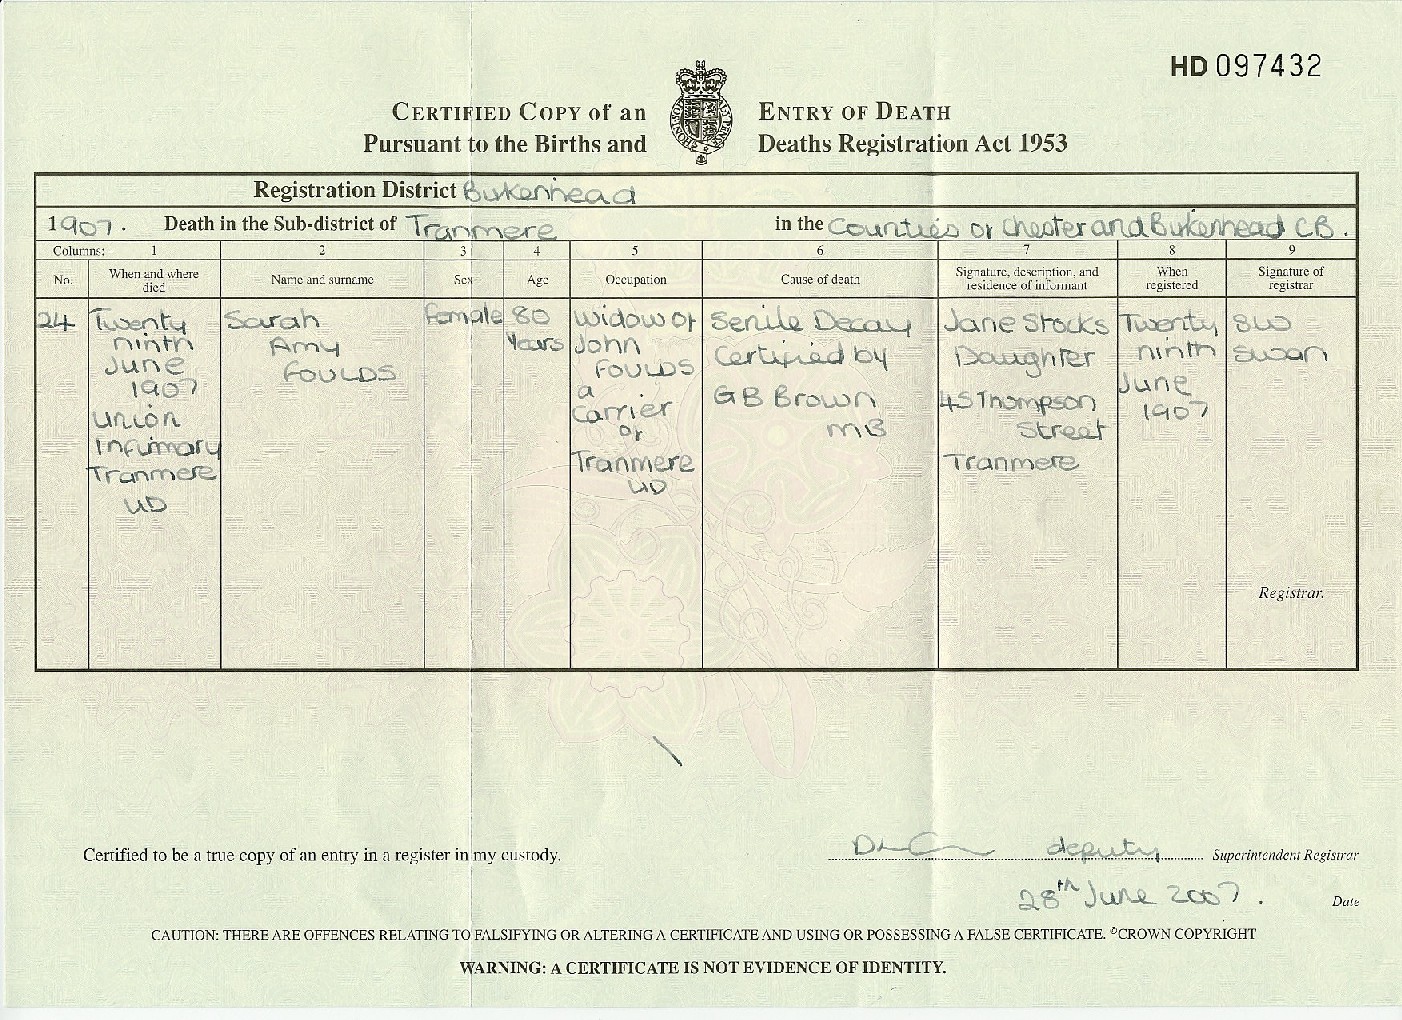 HD 097432
CERTIFIED COPY of an ENTRY OF DEATH
Pursuant to the Births and Deaths Registration Act 1953
Registration District Birkenhead
1907. Death in the Sub-district of Tranmere in the Counties of Chester and Birkenhead CB.
Columns: 1 2 3 4 5 6 7 8 9
No. When and where died Name and surname Sex Age Occupation Cause of death Signature, description, and residence of informant When registered Signature of registrar
24
Twenty
ninth
June
1907
Union
Infirmary
Tranmere
UD
Sarah
Amy
FOULDS
Female
80
Years
Widow of
John
FOULDS
a
Carrier
of
Tranmere
UD
Senile Decay
Certified by
G B Brown
MB
Jane Stocks
Daughter
45 Thompson
Street
Tranmere
Twenty
ninth
June
1907
Swan
Registrar.
Certified to be a true copy of an entry in a register in my custody.
deputy Superintendent Registrar
28th June 2007. Date
CAUTION: THERE ARE OFFENCES RELATING TO FALSIFYING OR ALTERING A CERTIFICATE AND USING OR POSSESSING A FALSE CERTIFICATE. ©CROWN COPYRIGHT
WARNING: A CERTIFICATE IS NOT EVIDENCE OF IDENTITY.